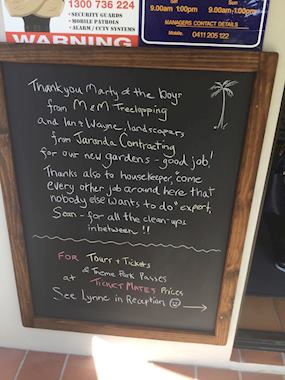 1300 736 224
• SECURITY GUARDS
• MOBILE PATROLS
• ALARM / CCTV SYSTEMS
WARNING
Sat
Sun
9.00am 1:00pm
9.00am-1:00pm
MANAGERS CONTACT DETAILS
Mobile: 0411 205 122
Thankyou Marty & the boys
from M & M Treelopping
and Ian & Wayne, landscapers
from Jaranda Contracting
for our new gardens - good job!
Thanks also to housekeeper, "come
every other job around here that
nobody else wants to do" expert,
Sean - for all the clean-ups
inbetween !!
FOR Tours & Tickets
& Theme Park Passes
at TICKET MATES Prices
See Lynne in Reception